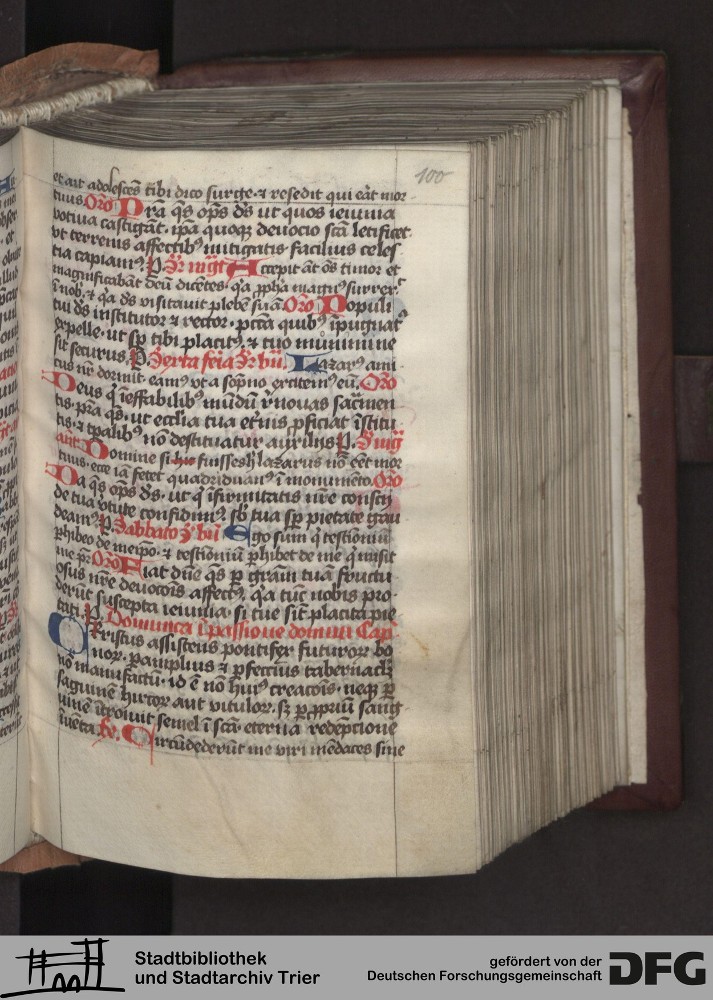 100
et ait adolescēs tibi dico surge · ⁊ resedit qui eāt mor
tuus Oro Pra q̄s op̄s ds ut quos ieiunia
votiua castigāt · ip̄a quoq; deuocio scā letificet ·
vt terrenis affectib⁹ mitigatis facilius celes
tia capiam⁹. P Sr̄ mīgt Accepit āt ōs timor et
magnificabāt deū dicētes · q̄a ꝓpha magn⁹ surrex
ī nob̄ · ⁊ q̄a ds visitauit plebē suā Oro Populi
tui ds institutor ⁊ rector · pctā quib⁹ īpugnat
expelle · ut sp̄ tibi placit⁹ · ⁊ tuo munimine
sit securus. P Sexta feīa Sr̄ bn̄. Lazar⁹ ami
cus nr̄ dormit · eam⁹ vt a sop̄no excitem⁹ eū. Oro
Deus q̄ īeffabilib⁹ mūdū rēnouas sacrmen
tis · pra q̄s · ut eccl̄ia tua et̄nis ꝓficiat īstitu
tis · ⁊ tp̄alib⁹ nō destituatur auxiliis P. Sr̄ mīg
ant Domine si hic fuisses lazarus nō eēt mor
tuus · ecce iā fetet quadriduan⁹ ī monumēto. Oro
Da q̄s op̄s ds · ut q̄ īfirmitatis nr̄e conscij
de tua v̄tute confidim⁹ · sb̄ tua sp̄ pietate gau
deam⁹. P Sabbato Sr̄ bn̄ Ego sum q̄ testioniū
ꝑhibeo de meip̄o · ⁊ testioniū ꝑhibet de me q̄ misit
me pr̄. Oro Fiat dn̄e q̄s ꝑ gr̄am tuā fructu
osus nr̄e deuocōis affect⁹ · q̄a tūc nobis pro
derūt suscepta ieiunia · si tue sīt placita pie
tati. P. Dominica ī passione domini Cap̄
Christus assistens pontifex futuror̄ bo
nor̄ · ꝑ amplius ⁊ ꝑfectius tabernacl̄m
nō manufactū · id ē nō hui⁹ creacōis · neq; ꝑ
saguinē hircor̄ aut vitulor̄ · sꝫ ꝑ ꝓpriū sang
uinē ītroiuit semel ī scā · eterna redēpcione
īuēta. Re. Circūdederūt me viri mēdaces sine
Stadtbibliothek
und Stadtarchiv Trier
gefördert von der
Deutschen Forschungsgemeinschaft
DFG